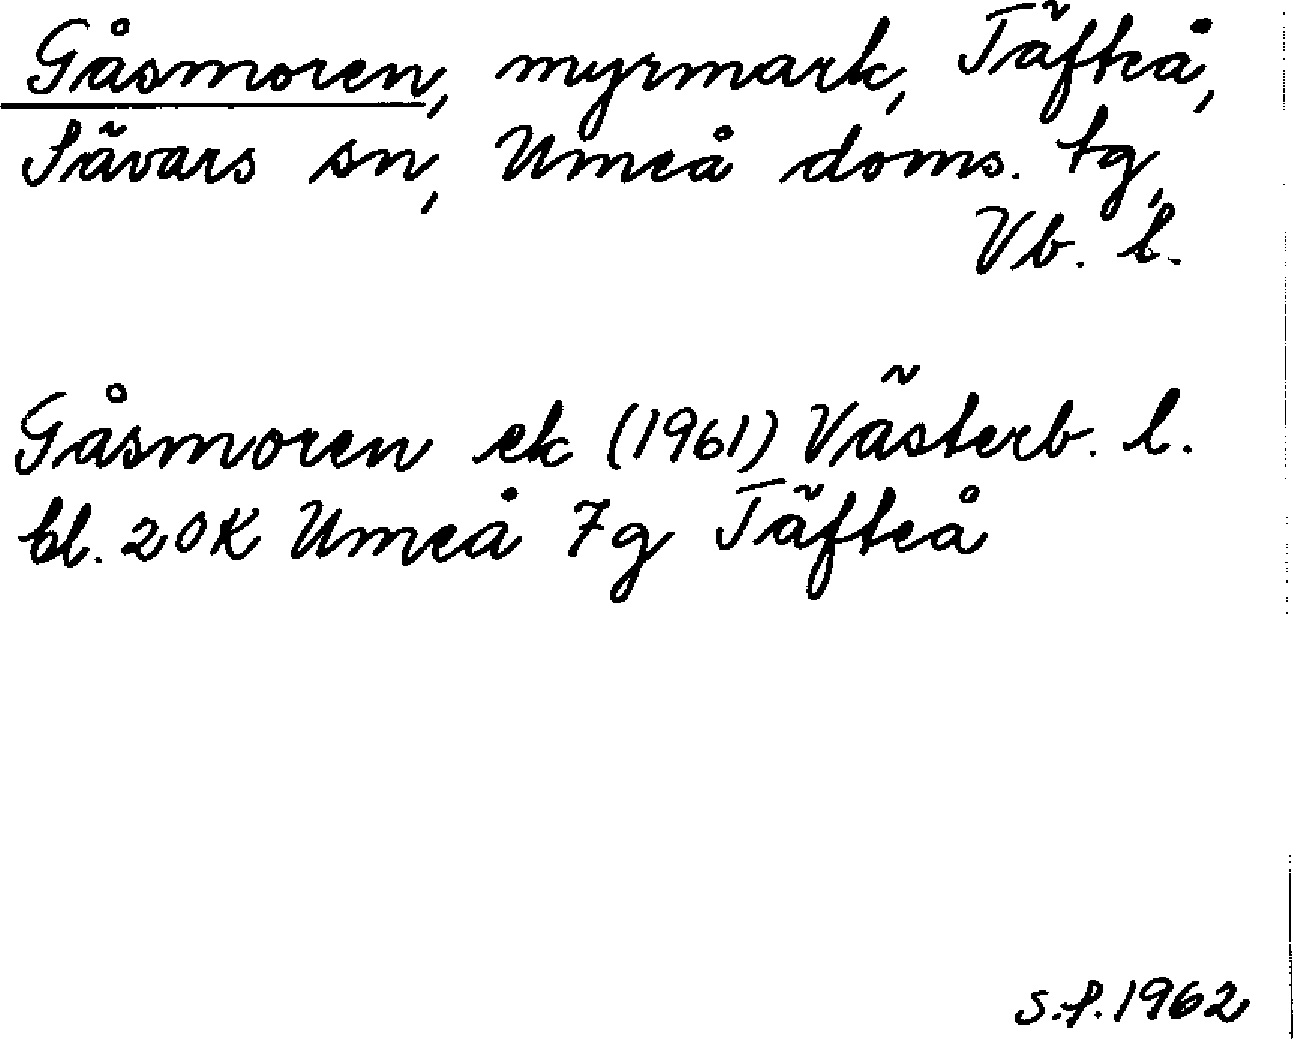 Gåsmoren, myrmark, Täfteå,
Sävars sn, Umeå doms. tg,
Vb. l.
Gåsmoren ek (1961) Västerb. l.
bl. 20K Umeå 7g Täfteå
S.f. 1962